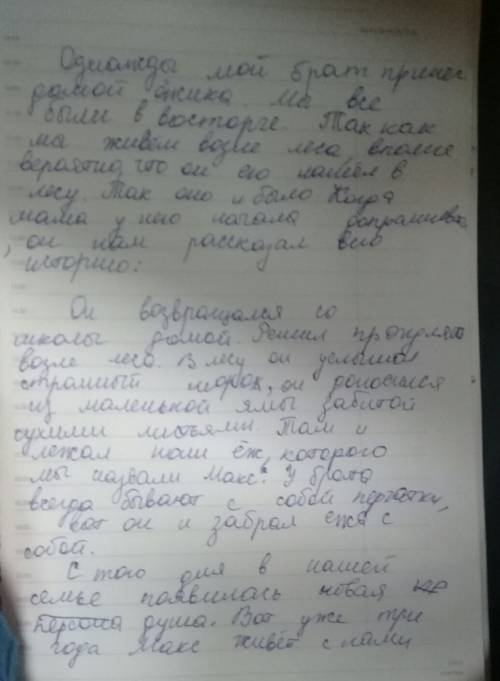 Однажды мой брат принес
домой ёжика. Мы все
были в восторге. Так как
мы живём возле леса, вполне
вероятно, что он его нашёл в
лесу. Так оно и было. Когда
мама у него начала допрашивать,
он нам рассказал всю
историю:
Он возвращался со
школы домой. Решил прогуляться
возле леса. В лесу он услышал
страшный шорох, он доносился
из маленькой ямы забитой
сухими листьями. Там и
лежал наш ёж, которого
мы назвали Макс. У брата
всегда бывают с собой перчатки,
вот он и забрал ежа с
собой.
С того дня в нашей
семье появилась новая
персона душа. Вот уже три
года Макс живёт с нами